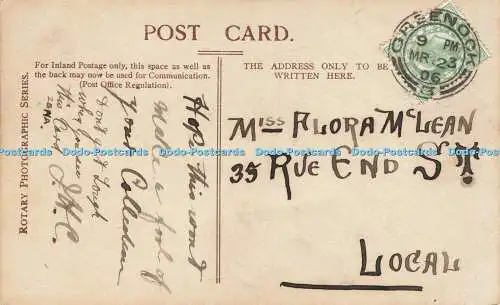 POST CARD.
For Inland Postage only, this space as well as
the back may now be used for Communication.
(Post Office Regulation).
THE ADDRESS ONLY TO BE
WRITTEN HERE.
GREENOCK
9 PM
MR 23
06
3
ROTARY PHOTOGRAPHIC SERIES.
Hope this won't
make a fool of
your Collection
Don't Laugh
when you see
this Card
J.H.C.
Miss FLORA McLEAN
35 RUE END ST.
LOCAL
Dodo-Postcards Dodo-Postcards Dodo-Postcards Dodo-Postcards Dodo-Postcards